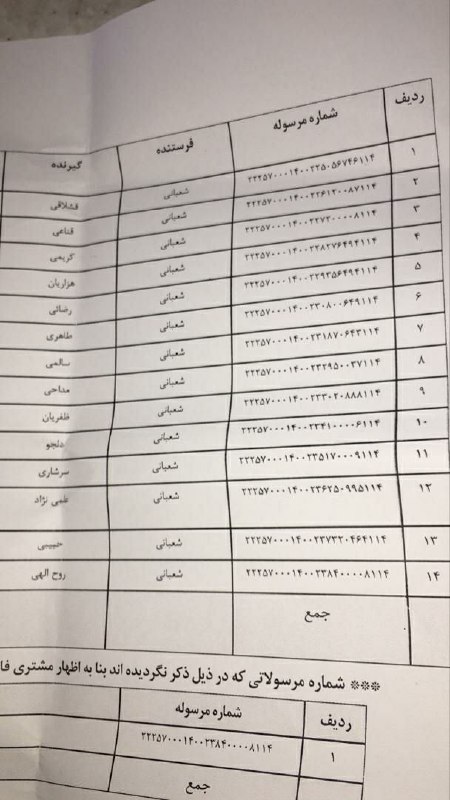 ردیف شماره مرسوله فرستنده گیرنده
۱ ۲۲۲۵۷۰۰۰۱۴۰۰۲۲۵۰۵۶۷۴۶۱۱۴ شعبانی قشلاقی
۲ ۲۲۲۵۷۰۰۰۱۴۰۰۲۲۶۱۲۰۰۸۷۱۱۴ شعبانی قناعی
۳ ۲۲۲۵۷۰۰۰۱۴۰۰۲۲۷۲۰۰۰۰۸۱۱۴ شعبانی کریمی
۴ ۲۲۲۵۷۰۰۰۱۴۰۰۲۲۸۲۷۶۴۹۴۱۱۴ شعبانی هزاریان
۵ ۲۲۲۵۷۰۰۰۱۴۰۰۲۲۹۳۵۶۴۹۴۱۱۴ شعبانی رضائی
۶ ۲۲۲۵۷۰۰۰۱۴۰۰۲۳۰۸۰۰۶۴۹۱۱۴ شعبانی طاهری
۷ ۲۲۲۵۷۰۰۰۱۴۰۰۲۳۱۸۷۰۶۴۳۱۱۴ شعبانی سالمی
۸ ۲۲۲۵۷۰۰۰۱۴۰۰۲۳۲۹۵۰۰۳۷۱۱۴ شعبانی مداحی
۹ ۲۲۲۵۷۰۰۰۱۴۰۰۲۳۳۰۲۰۸۸۸۱۱۴ شعبانی ظفریان
۱۰ ۲۲۲۵۷۰۰۰۱۴۰۰۲۳۴۱۰۰۰۰۶۱۱۴ شعبانی دلجو
۱۱ ۲۲۲۵۷۰۰۰۱۴۰۰۲۳۵۱۷۰۰۰۹۱۱۴ شعبانی سرشاری
۱۲ ۲۲۲۵۷۰۰۰۱۴۰۰۲۳۶۲۵۰۹۹۵۱۱۴ شعبانی علمی نژاد
۱۳ ۲۲۲۵۷۰۰۰۱۴۰۰۲۳۷۳۲۰۴۶۴۱۱۴ شعبانی حبیبی
۱۴ ۲۲۲۵۷۰۰۰۱۴۰۰۲۳۸۴۰۰۰۰۸۱۱۴ شعبانی روح الهی
جمع
*** شماره مرسولاتی که در ذیل ذکر نگردیده اند بنا به اظهار مشتری فا
ردیف شماره مرسوله
۱ ۲۲۲۵۷۰۰۰۱۴۰۰۲۳۸۴۰۰۰۰۸۱۱۴
جمع